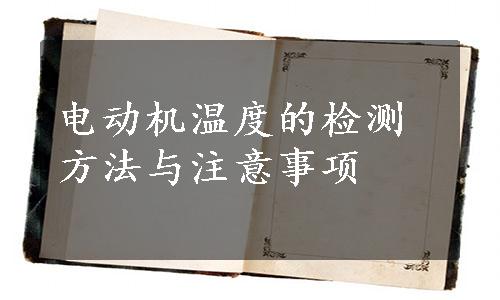 电动机温度的检测
方法与注意事项